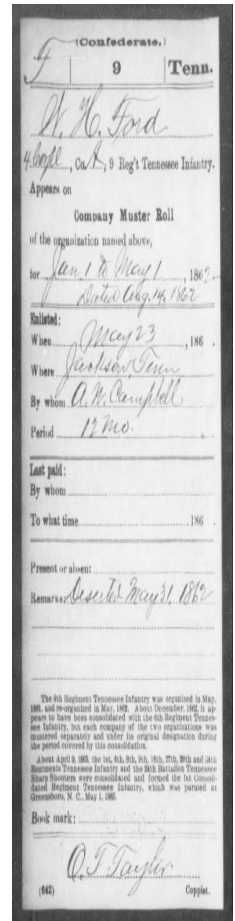 (Confederate.)
F 9 Tenn.
W. H. Ford
4 Corpl, Co. A, 9 Reg't Tennessee Infantry.
Appears on
Company Muster Roll
of the organization named above,
for Jan. 1 to May 1, 1862.
Dated Aug. 14, 1862
Enlisted:
When May 23, 186
Where Jackson, Tenn
By whom A. W. Campbell
Period 12 mo.
Last paid:
By whom
To what time 186
Present or absent
Remarks: Deserted May 31, 1862
The 9th Regiment Tennessee Infantry was organized in May,
1861, and re-organized in May, 1862. About December, 1862, it ap-
pears to have been consolidated with the 6th Regiment Tennes-
see Infantry, but each company of the two organizations was
mustered separately and under its original designation during
the period covered by this consolidation.
About April 9, 1865, the 1st, 6th, 8th, 9th, 16th, 27th, 28th and 34th
Regiments Tennessee Infantry and the 24th Battalion Tennessee
Sharp Shooters were consolidated and formed the 1st Consoli-
dated Regiment Tennessee Infantry, which was paroled at
Greensboro, N. C., May 1, 1865.
Book mark:
O. T. Taylor
(642) Copyist.